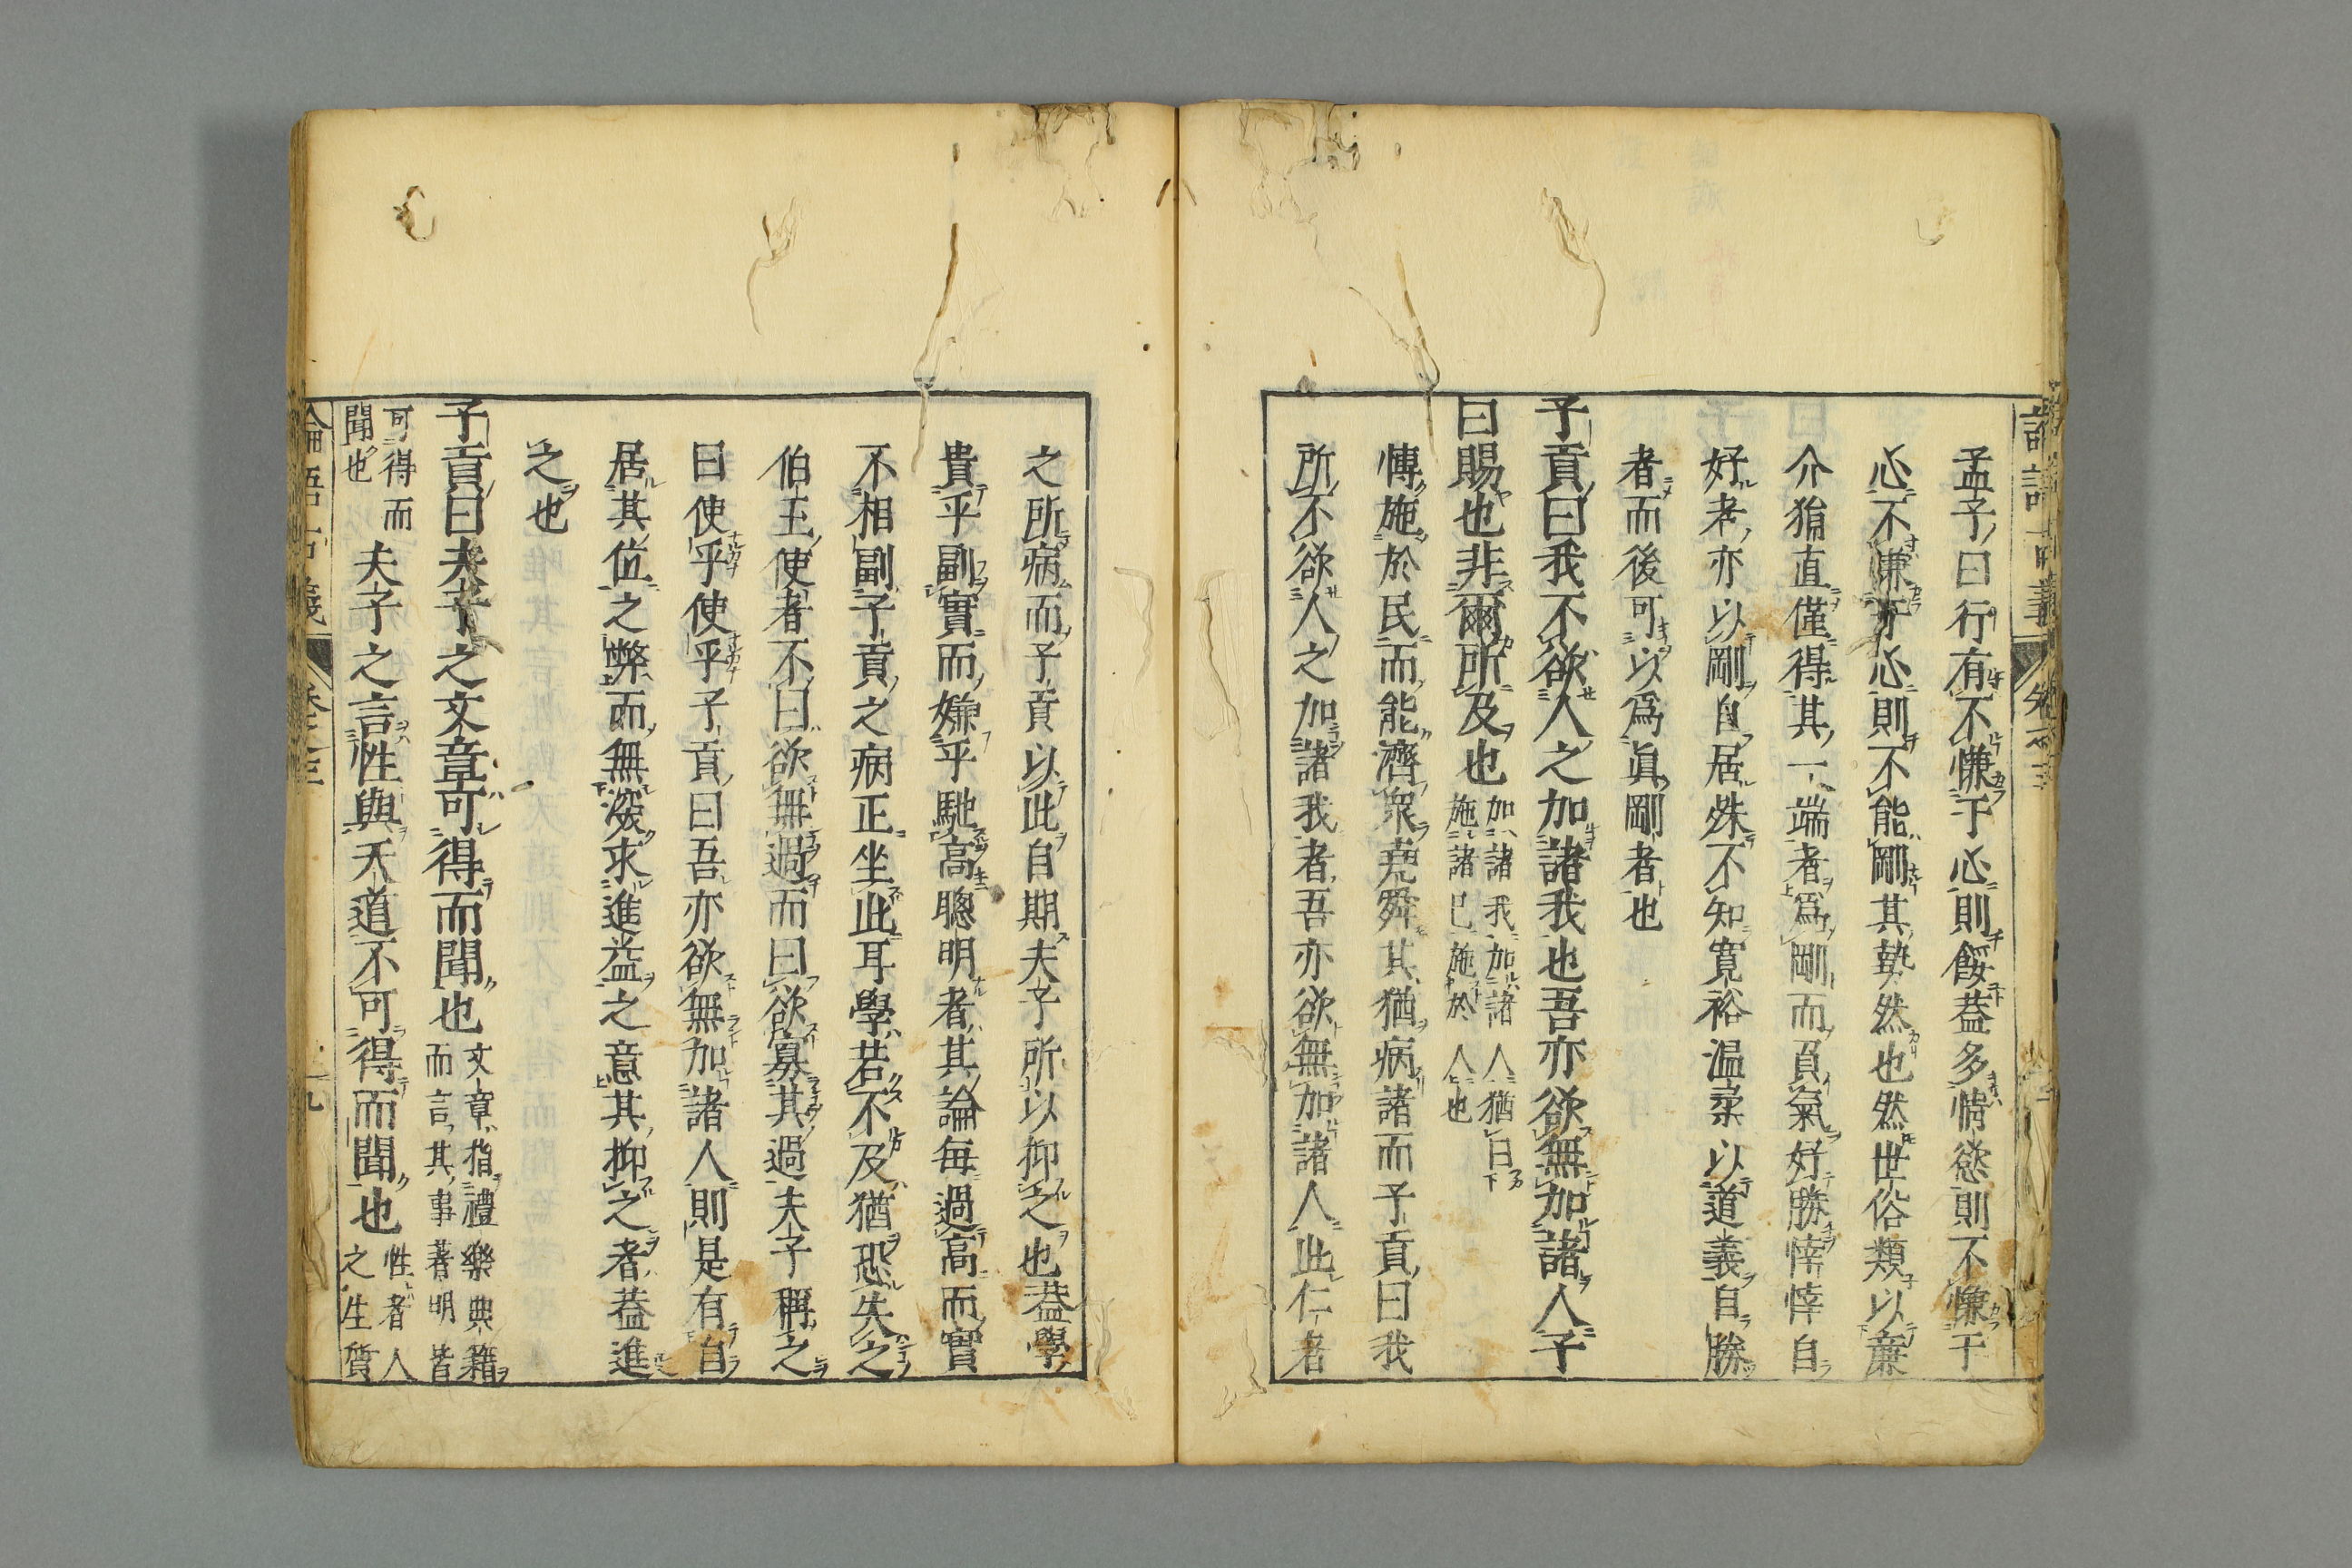 孟子曰行有不慊于心則餒蓋多情慾則不慊于
心不慊于心則不能剛其埶然也然世俗類以廉
介狷直僅得其一端者爲剛而負氣好勝悻悻自
好者亦以剛自居殊不知寛裕温柔以道義自勝
者而後可以爲眞剛者也
子貢曰我不欲人之加諸我也吾亦欲無加諸人子
曰賜也非爾所及也
加諸我加諸人猶曰
施諸己施於人也
博施於民而能濟衆堯舜其猶病諸而子貢曰我
所不欲人之加諸我者吾亦欲無加諸人此仁者
之所病而子貢以此自期夫子所以抑之也蓋學
貴乎副實而嫌乎馳高聰明者其論毎過高而實
不相副子貢之病正坐此耳學若不及猶恐失之
伯玉使者不曰欲無過而曰欲寡其過夫子稱之
曰使乎使乎子貢曰吾亦欲無加諸人則是有自
居其位之弊而無汲求進益之意其抑之者蓋進
之也
子貢曰夫子之文章可得而聞也
文章指禮樂典籍
而言其事著明皆
可得而
聞也
夫子之言性與天道不可得而聞也
性者人
之生質
論語古義 卷之三